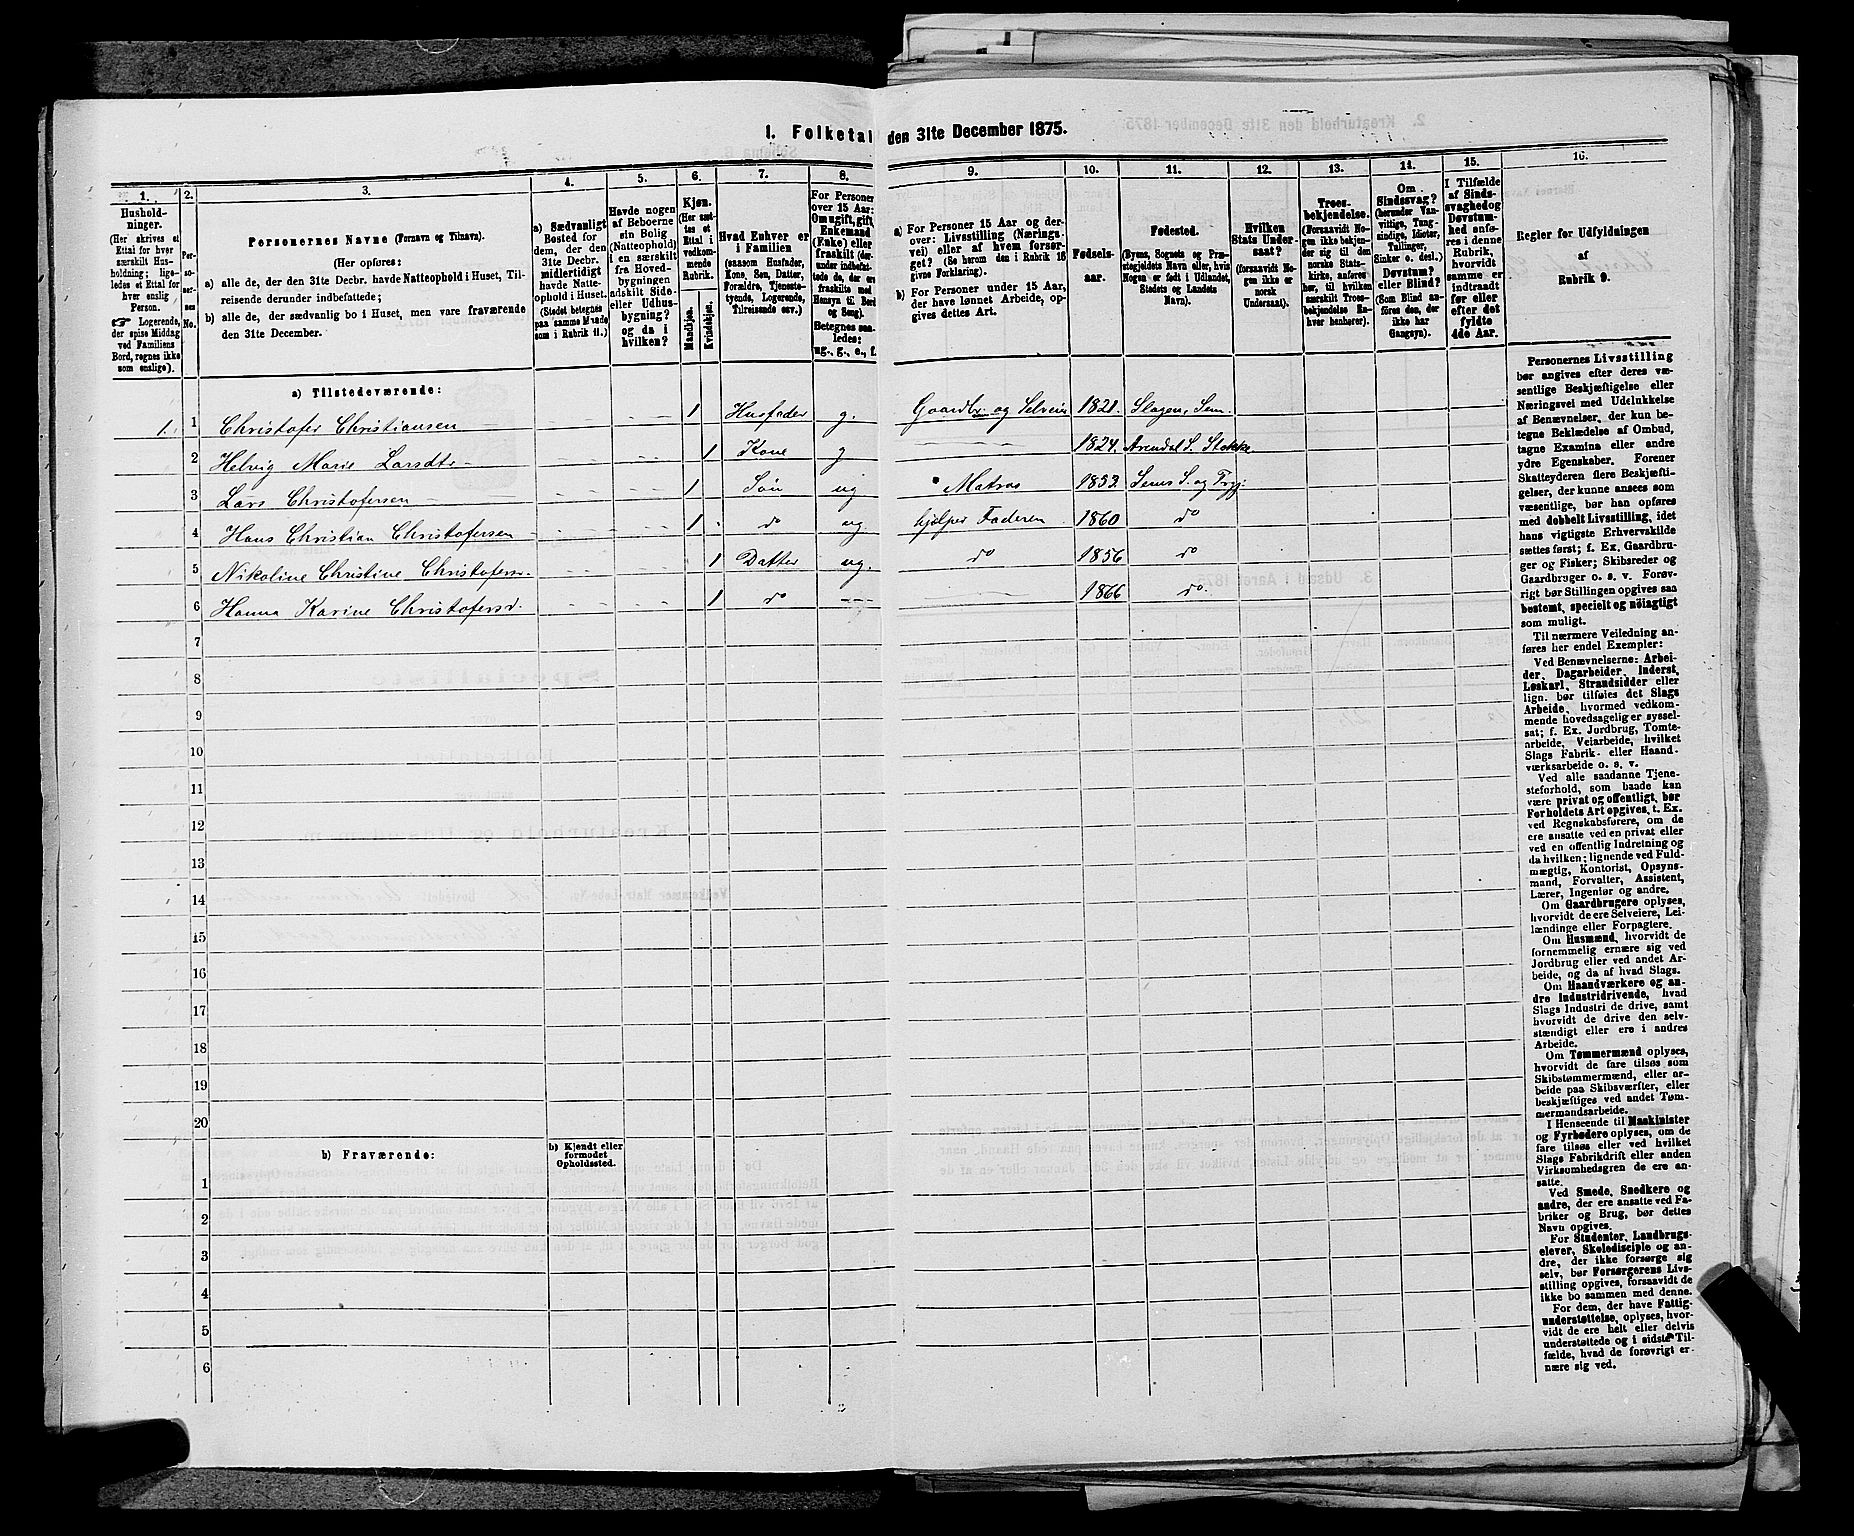 1. Folketal den 31te December 1875.
1. 2. 3. 4. 5. 6. 7. 8. 9. 10. 11. 12. 13. 14. 15. 16.
Hushold-
ninger.
(Her skrives et
Ettal for hver
særskilt Hus-
holdning; lige-
ledes et Ettal for
hver enslig
Person.
☞ Logerende,
der spise Middag
ved Familiens
Bord, regnes ikke
som enslige).
Per-
so-
ner-
nes
No.
Personernes Navne (Fornavn og Tilnavn).
(Her opføres:
a) alle de, der den 31te Decbr. havde Natteophold i Huset, Til-
reisende derunder indbefattede;
b) alle de, der sædvanlig bo i Huset, men vare fraværende
den 31te December.
a) Sædvanligt
Bosted for
dem, der den
31te Decbr.
midlertidigt
havde Natte-
ophold i Huset.
(Stedet betegnes
paa samme Maade
som i Rubrik 11.)
Havde nogen
af Beboerne
sin Bolig
(Natteophold)
i en særskilt
fra Hoved-
bygningen
adskilt Side-
eller Udhus-
bygning?
og da i
hvilken?
Kjøn.
(Her sæt-
tes et
Ettal i
vedkom-
mende
Rubrik.
Mandkjøn.
Kvindekjøn.
Hvad Enhver er
i Familien
(saasom Husfader,
Kone, Søn, Datter,
Forældre, Tjeneste-
tyende, Logerende,
Tilreisende osv.)
For Personer
over 15 Aar:
Om ugift, gift,
Enkemand
(Enke) eller
fraskilt
Betegnes saa-
ledes:
ug., g., e., f.
a) For Personer 15 Aar og der-
over: Livsstilling (Nærings-
vei) eller af hvem forsør-
get? (Se herom den i Rubrik 16
givne Forklaring).
b) For Personer under 15 Aar,
der have lønnet Arbeide, op-
gives dettes Art.
Fødsels-
aar.
Fødested.
(Byens, Sognets og Præ-
stegjeldets Navn eller, hvis
Nogen er født i Udlandet,
Stedets og Landets
Navn).
Hvilken
Stats Under-
saat?
(forsaavidt No-
gen ikke er
norsk
Undersaat).
Troes-
bekjendelse.
(Forsaavidt No-
gen ikke bekjen-
der sig til den
norske Stats-
kirke, anføres
her, til hvilket
særskilt Troes-
bekjendelse En-
hver henhører).
Om
Sindssvag?
(herunder Van-
vittige, Tung-
sindige, Idioter,
Tullinger,
Sinker o. desl.)
Døvstum?
eller Blind?
(Som Blind an-
føres den, der
ikke har
Gangsyn).
I Tilfælde
af Sinds-
svaghed og
Døvstum-
hed anfø-
res i denne
Rubrik,
hvorvidt
samme er
indtraadt
før eller
efter det
fyldte
4de Aar.
Regler for Udfyldningen
af
Rubrik 9.
a) Tilstedeværende:
1. 1 Christofer Christiansen 1 Husfader g. Gaardbr. og Selveier 1821. Slagen, Sem.
2 Helvig Marie Larsdtr 1 Kone g 1824. Arendal S. Stokke
3 Lars Christofersen 1 Søn ug Matros 1853. Sems S. og Prgj.
4 Hans Christian Christofersen 1 do ug. hjælper Faderen 1860 do
5 Nikoline Christine Christofersd. 1 Datter ug. do 1856 do
6 Hanna Karine Christofersd. 1 do 1866 do.
7
8
9
10
11
12
13
14
15
16
17
18
19
20
b) Fraværende:
b) Kjendt eller
formodet
Opholdssted.
1
2
3
4
5
6
Personernes Livsstilling
bør angives efter deres væ-
sentlige Beskjæftigelse eller
Næringsvei med Udelukkelse
af Benævnelser, der kun be-
tegne Beklædelse af Ombud,
tagne Examina eller andre
ydre Egenskaber. Forener
Skatteyderen flere Beskjæfti-
gelser, der kunne ansees som
væsentlige, bør han opføres
med dobbelt Livsstilling, idet
hans vigtigste Erhvervskilde
sættes først; f. Ex. Gaardbru-
ger og Fisker; Skibsreder og
Gaardbruger o. s. v. Forøv-
rigt bør Stillingen opgives saa
bestemt, specielt og nöiagtigt
som muligt.
Til nærmere Veiledning an-
føres her endel Exempler:
Ved Benævnelserne: Arbei-
der, Dagarbeider, Inderst,
Løskarl, Strandsidder eller
lign. bør tilføies det Slags
Arbeide, hvormed vedkom-
mende hovedsagelig er syssel-
sat; f. Ex. Jordbrug, Tomte-
arbeide, Veiarbeide, hvilket
Slags Fabrik- eller Haand-
værksarbeide o. s. v.
Ved alle saadanne Tjene-
steforhold, som baade kan
være privat og offentligt, bør
Forholdets Art opgives, t. Ex.
ved Regnskabsførere, om de
ere ansatte ved en privat eller
ved en offentlig Indretning og
da hvilken; lignende ved Fuld-
mægtig, Kontorist, Opsyns-
mand, Forvalter, Assistent,
Lærer, Ingeniør og andre.
Om Gaardbrugere oplyses,
hvorvidt de ere Selveiere, Lei-
lændinge eller Forpagtere.
Om Husmænd, hvorvidt de
fornemmelig ernære sig ved
Jordbrug eller ved andet Ar-
beide, og da af hvad Slags.
Om Haandværkere og an-
dre Industridrivende, hvad
Slags Industri de drive, samt
hvorvidt de drive den selv-
stændigt eller ere i andres
Arbeide.
Om Tømmermænd oplyses,
hvorvidt de fare tilsøs som
Skibstømmermænd, eller ar-
beide paa Skibsværfter, eller
beskjæftiges ved andet Tøm-
mermandsarbeide.
I Henseende til Maskinister
og Fyrbødere oplyses, om de
fare tilsøs eller ved hvilket
Slags Fabrikdrift eller anden
Virksomhedsgren de ere an-
satte.
Ved Smede, Snedkere og
andre, der ere ansatte ved Fa-
briker og Brug, bør dettes
Navn opgives.
For Studenter, Landbrugs-
elever, Skoledisciple og an-
dre, der ikke forsørge sig
selv, bør Forsørgerens Livs-
stilling opgives, forsaavidt de
ikke bo sammen med denne.
For dem, der have Fattig-
understøttelse, oplyses, hvor-
vidt de ere helt eller delvis
understøttede og i sidste Til-
fælde, hvad de forøvrigt er-
nære sig ved.